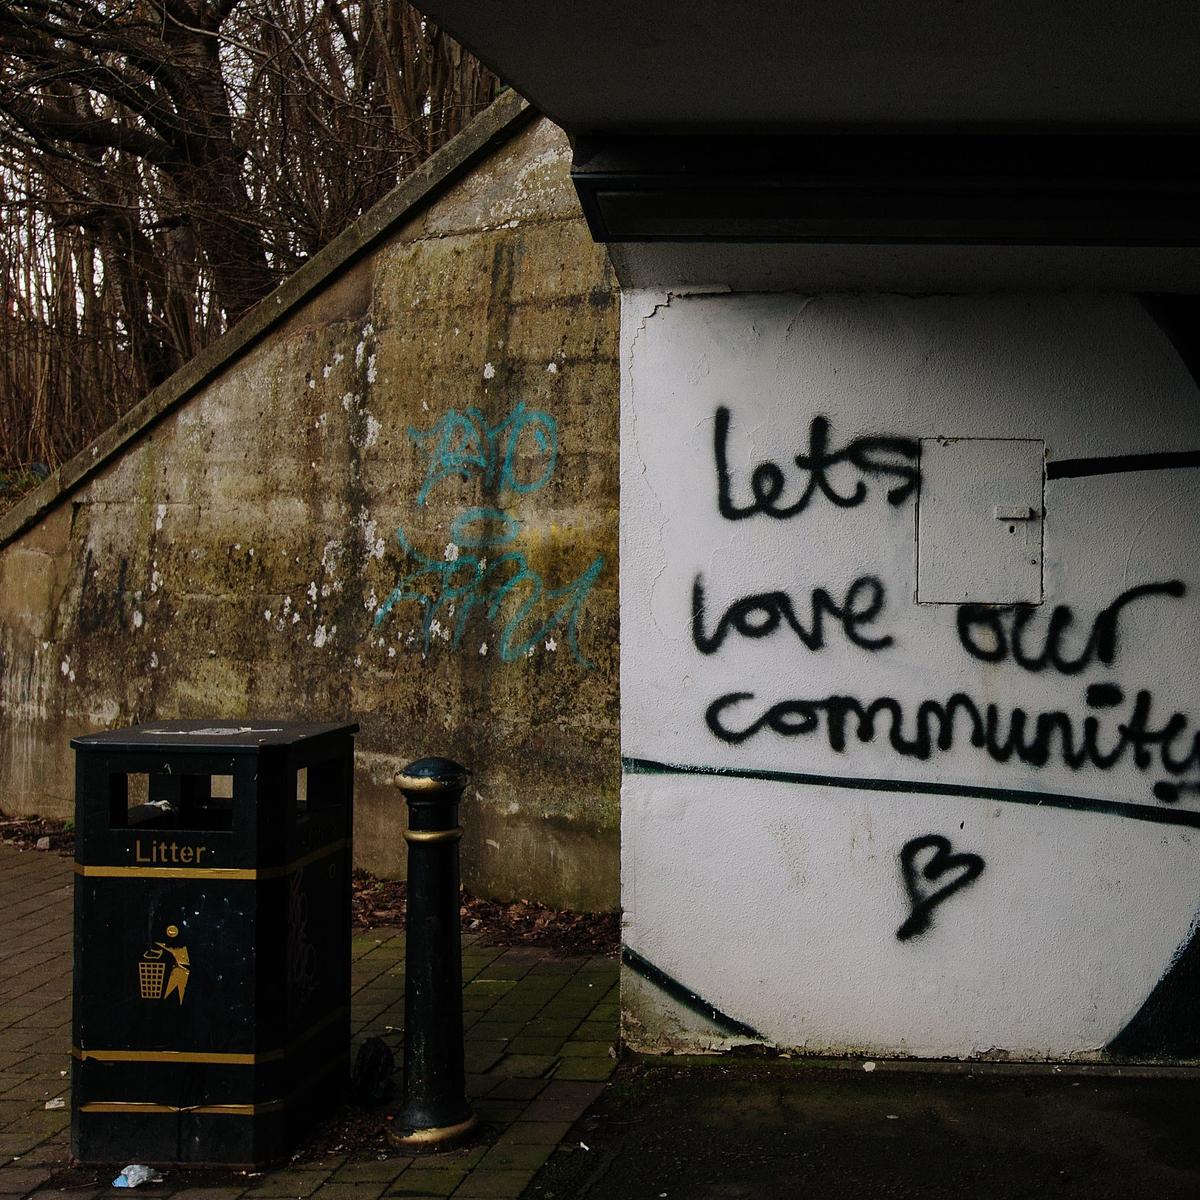 lets
love our
community
Litter